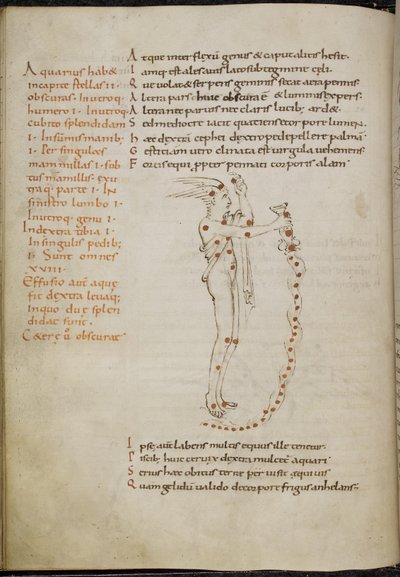 Aquarius habet
in capite stellas ii
obscuras. In utroq;
humero i. In utroq;
cubito splendidam
i. In sūmis manib;
i. Per singulas
mamillas i. sob
tus mamillis. ex u
traq; parte i. In
sinistro lumbo i.
In utroq; genu i.
In dextra tibia i.
In singulis pedib;
i. Sunt omnes
xviii.
Effusio aut̄ aquę
fit dextra levaq;
In quo duę splen
didae sunt.
Ceterę ū obscurae
Atque inter flexū genus & caput alitis hesit.
Iamq; est ales avis lato sub tegmine cęli
Quę volat & serpens geminis secat aera pennis
Altera pars huic obscura ē & luminis expers.
Altera nec parvis nec claris lucib; ardę.
Sed mediocre iacit quatiens e corpore lumen.
Haec dextrā cephei dextro pede pellere palmā
Gestit iam vero clinata est ungula vehemens
Fortis equi propter pennati corporis alam
Ipse aut̄ labens multis equus ille tenetur.
Piscib; huic cervix dextra mulcet̄ aquari
Serius haec obitus terrae pervisit equi vis
Quam gelidum valido de corpore frigus anhelans.